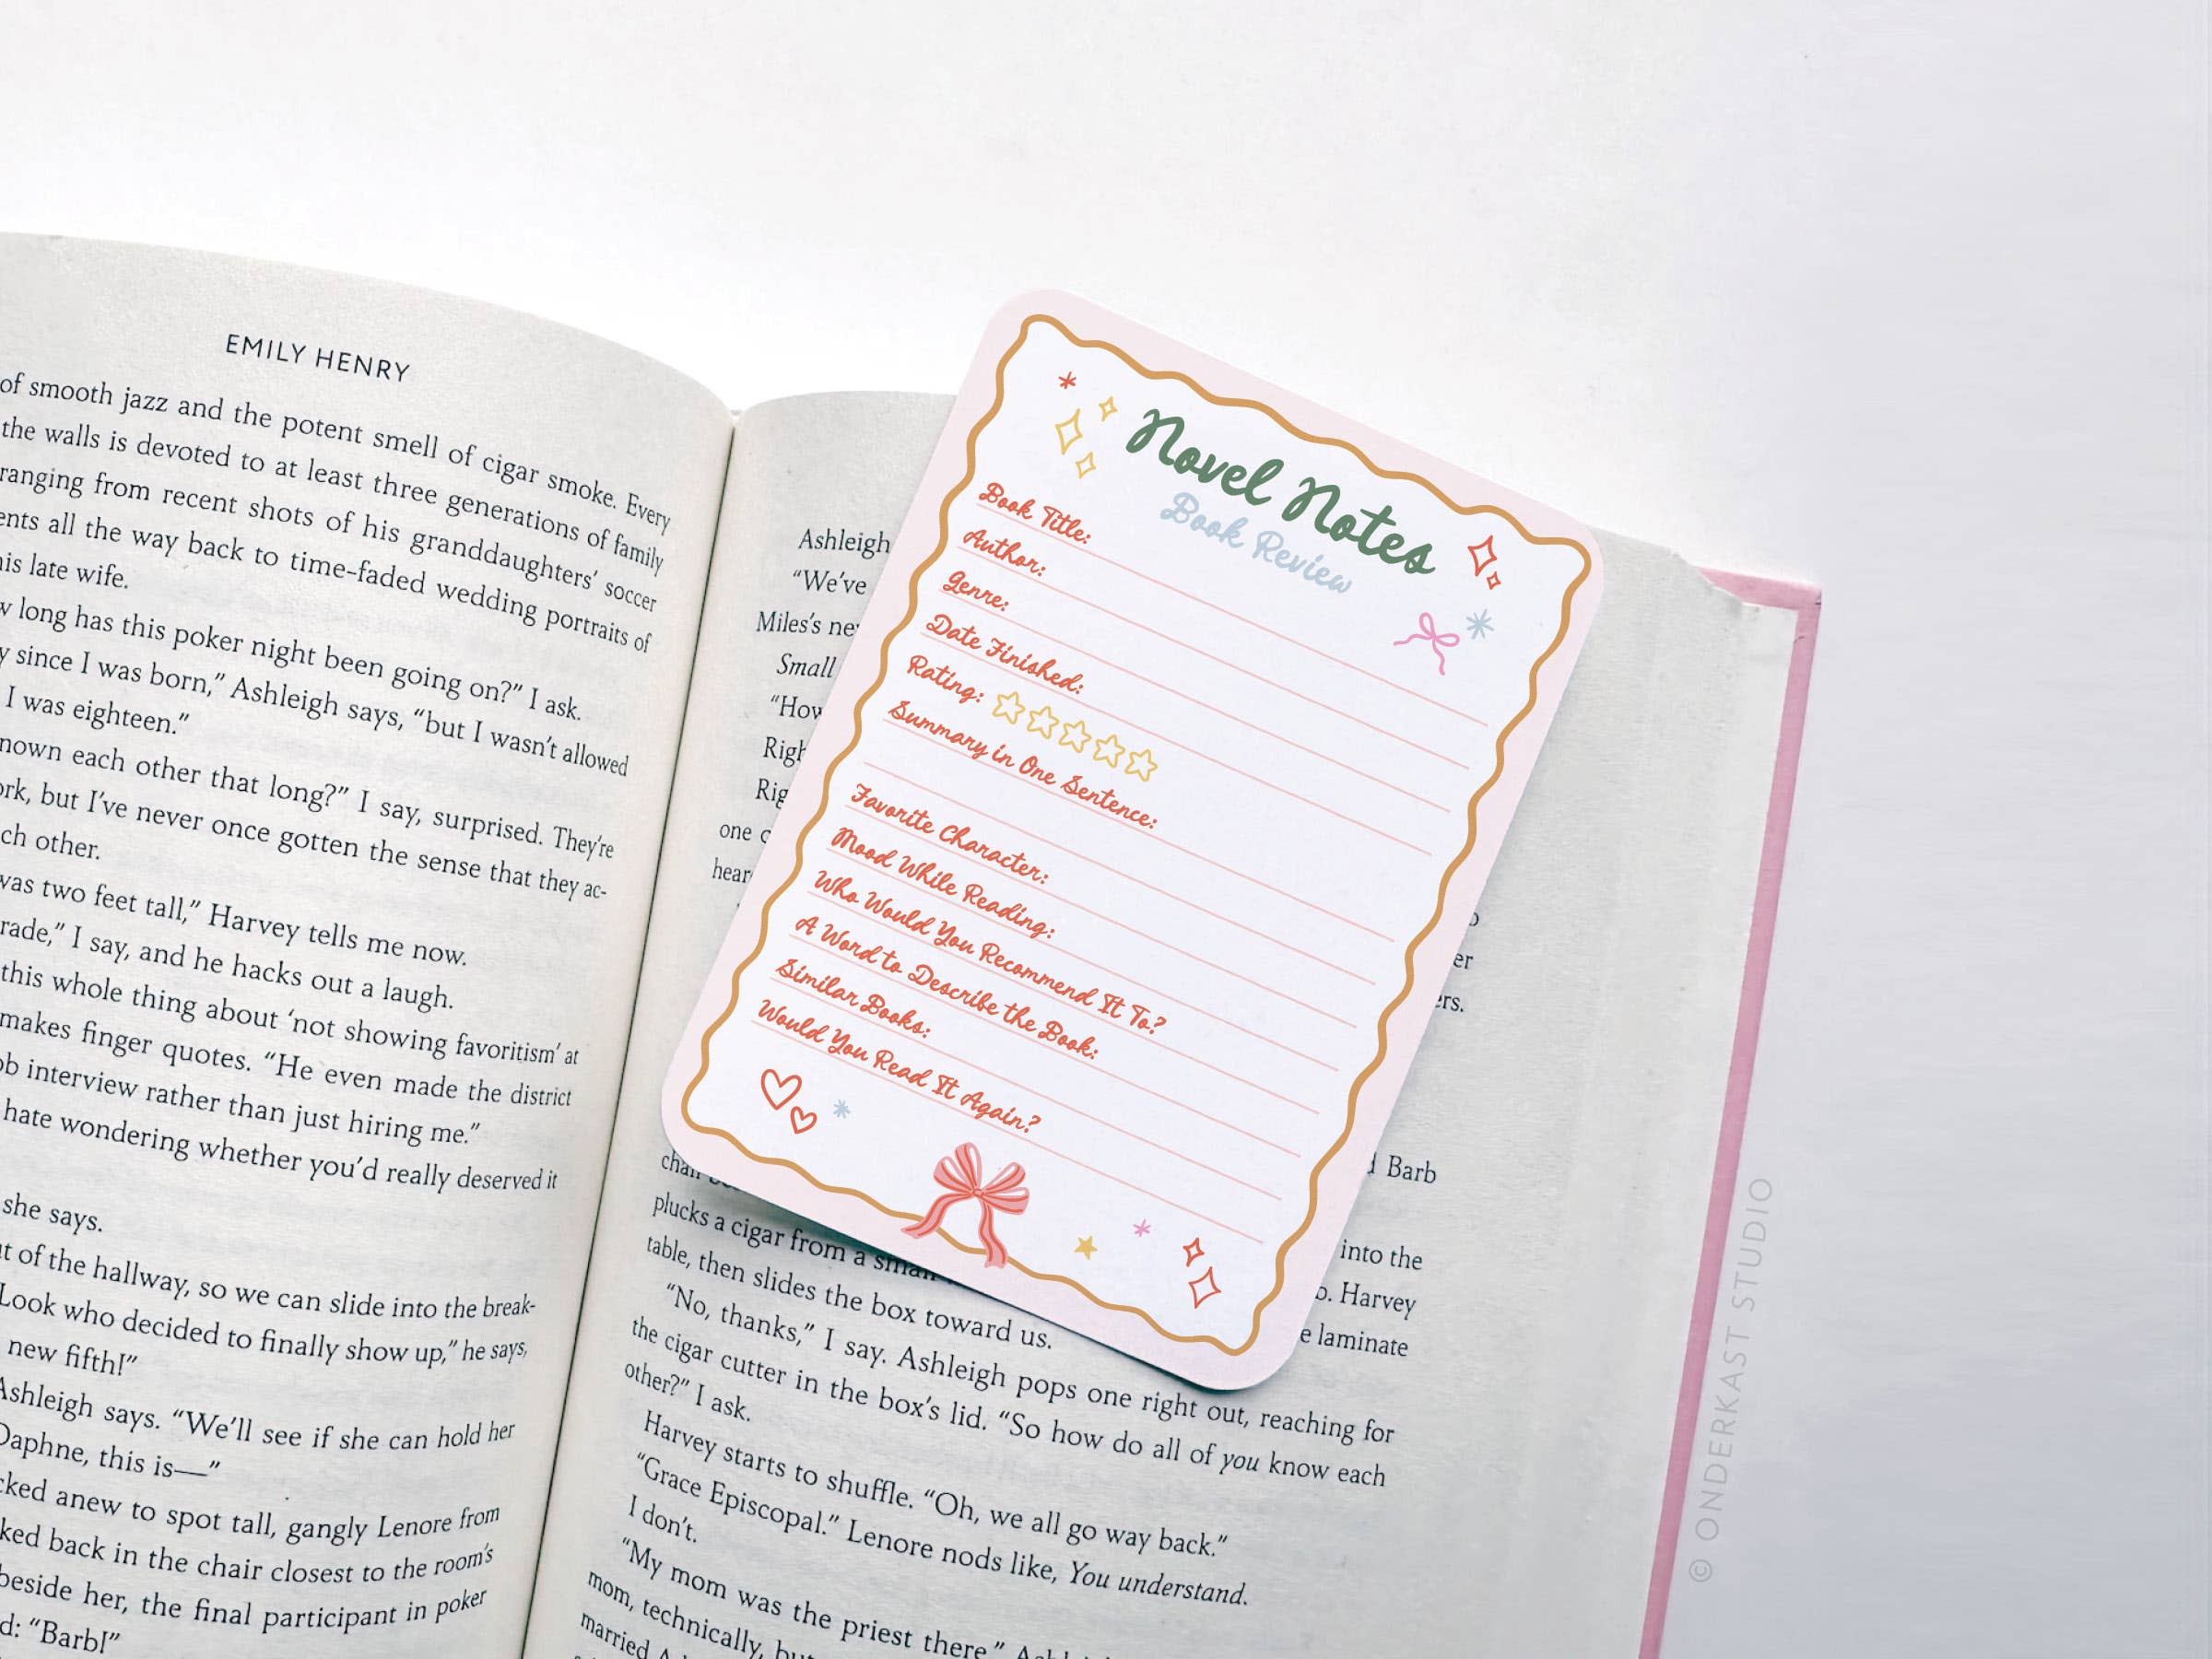 EMILY HENRY
of smooth jazz and the potent smell of cigar smoke. Every
the walls is devoted to at least three generations of family
ranging from recent shots of his granddaughters’ soccer
ents all the way back to time-faded wedding portraits of
his late wife.
w long has this poker night been going on?” I ask.
y since I was born,” Ashleigh says, “but I wasn’t allowed
I was eighteen.”
nown each other that long?” I say, surprised. They’re
ork, but I’ve never once gotten the sense that they ac-
ch other.
was two feet tall,” Harvey tells me now.
rade,” I say, and he hacks out a laugh.
this whole thing about ‘not showing favoritism’ at
makes finger quotes. “He even made the district
ob interview rather than just hiring me.”
hate wondering whether you’d really deserved it
she says.
ut of the hallway, so we can slide into the break-
Look who decided to finally show up,” he says,
new fifth!”
Ashleigh says. “We’ll see if she can hold her
Daphne, this is—”
cked anew to spot tall, gangly Lenore from
ked back in the chair closest to the room’s
beside her, the final participant in poker
d: “Barb!”
Novel Notes
Book Review
Book Title:
Author:
Genre:
Date Finished:
Rating:
Summary in One Sentence:
Favorite Character:
Mood While Reading:
Who Would You Recommend It To?
A Word to Describe the Book:
Similar Books:
Would You Read It Again?
Ashleigh
“We’ve
Miles’s
Small
“How
Righ
Rig
one
hear
er
ers.
Barb
plucks a cigar from a small
into the
table, then slides the box toward us.
Harvey
“No, thanks,” I say. Ashleigh pops one right out, reaching for
e laminate
the cigar cutter in the box’s lid. “So how do all of you know each
other?” I ask.
Harvey starts to shuffle. “Oh, we all go way back.”
“Grace Episcopal.” Lenore nods like, You understand.
I don’t.
“My mom was the priest there”
mom, technically,
married
© ONDERKAST STUDIO